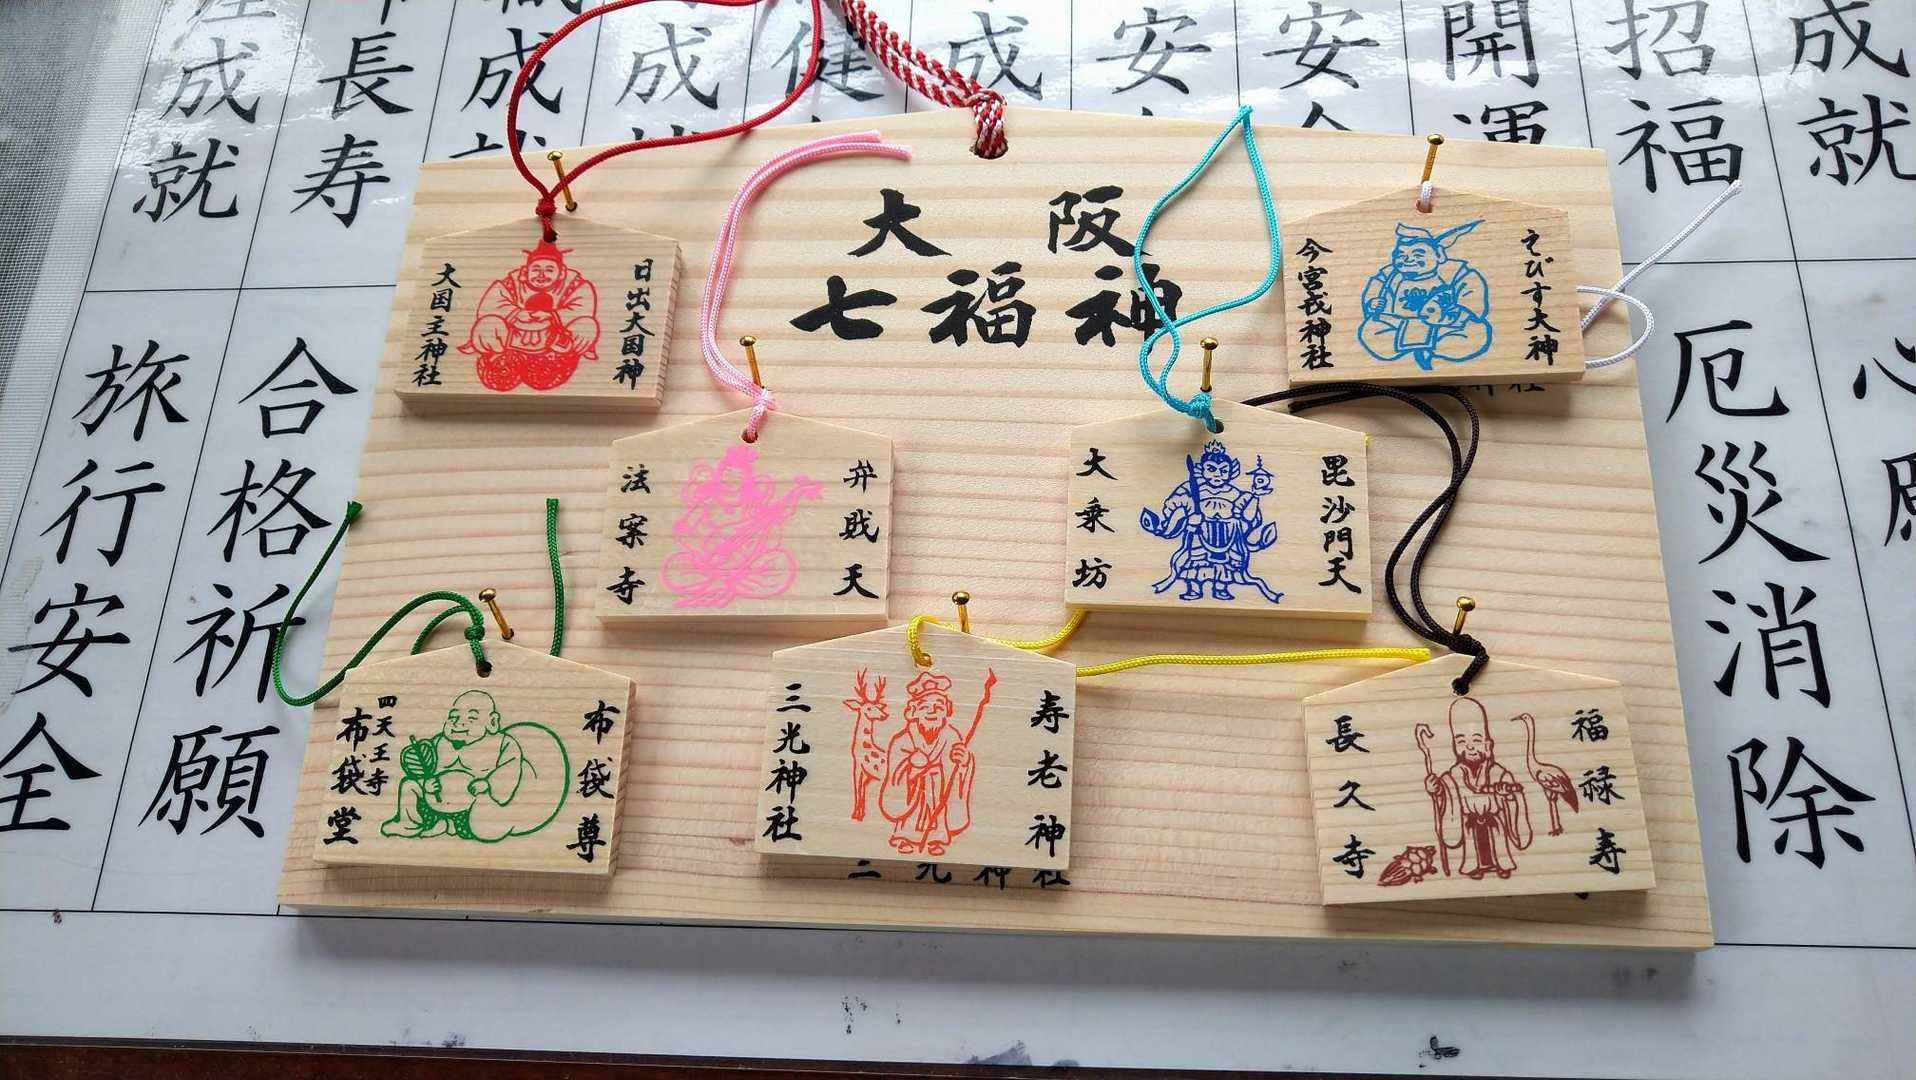 成就
長寿
成
成
健
成
安
安
開運
招福
成就
大阪
七福神
日出大国神
大国主神社
えびす大神
今宮戎神社
弁戝天
法案寺
毘沙門天
大乗坊
布袋尊
四天王寺
布袋堂
寿老神
三光神社
三光神社
福禄寿
長久寺
旅行安全
合格祈願
厄災消除
心願